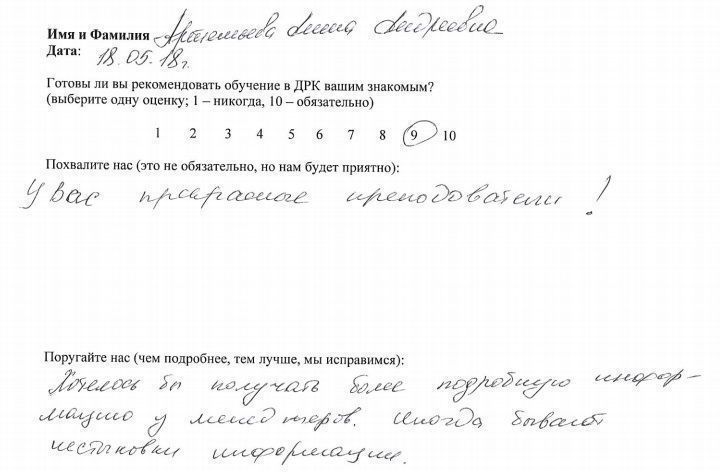 Имя и Фамилия Артемьева Анна Андреевна
Дата: 18.05.18г.
Готовы ли вы рекомендовать обучение в ДРК вашим знакомым?
(выберите одну оценку; 1 – никогда, 10 – обязательно)
1 2 3 4 5 6 7 8 9 10
Похвалите нас (это не обязательно, но нам будет приятно):
У Вас прекрасные преподователи!
Поругайте нас (чем подробнее, тем лучше, мы исправимся):
Хотелось бы получать более подробную инфор-
мацию у менеджеров. Иногда бывают
нестыковки информации.